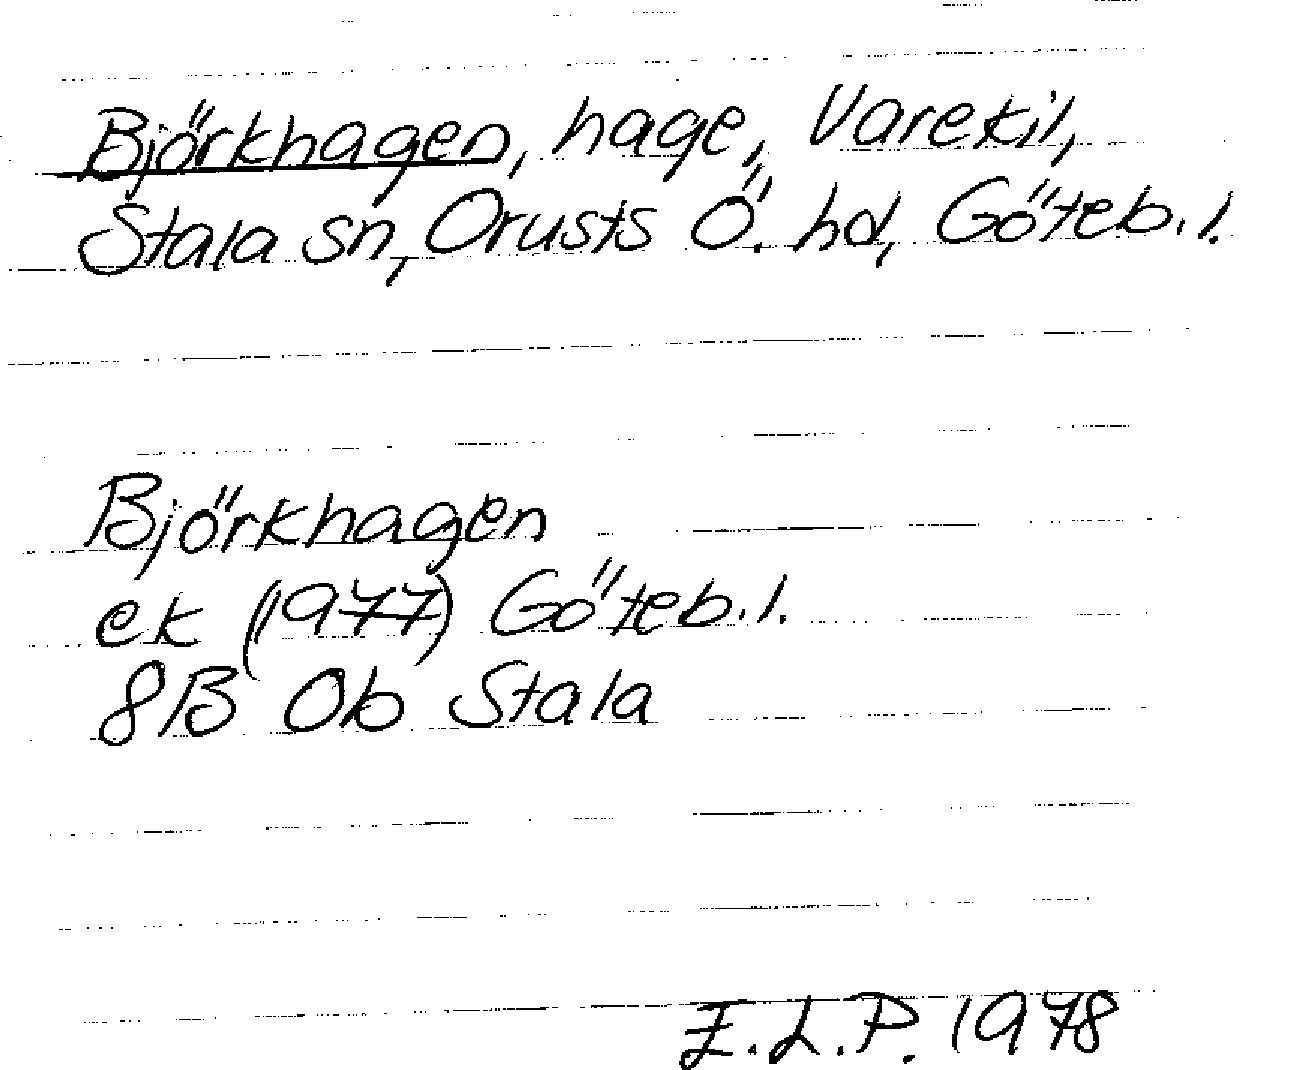 Björkhagen, hage, Varekil,
Stala sn, Orusts Ö. hd, Göteb.l.
Björkhagen
ek (1977) Göteb.l.
8B 0b Stala
E.L.P. 1978